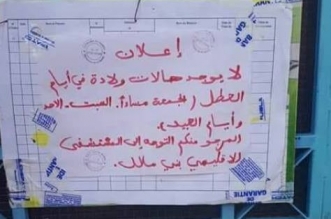 إعلان
لا يوجد حالات ولادة في أيام
العطل (الجمعة مساءاً. السبت. الأحد
وأيام العيد).
المرجو منكم التوجه إلى المستشفى
الإقليمي بني ملال.
DE
GARANTIE